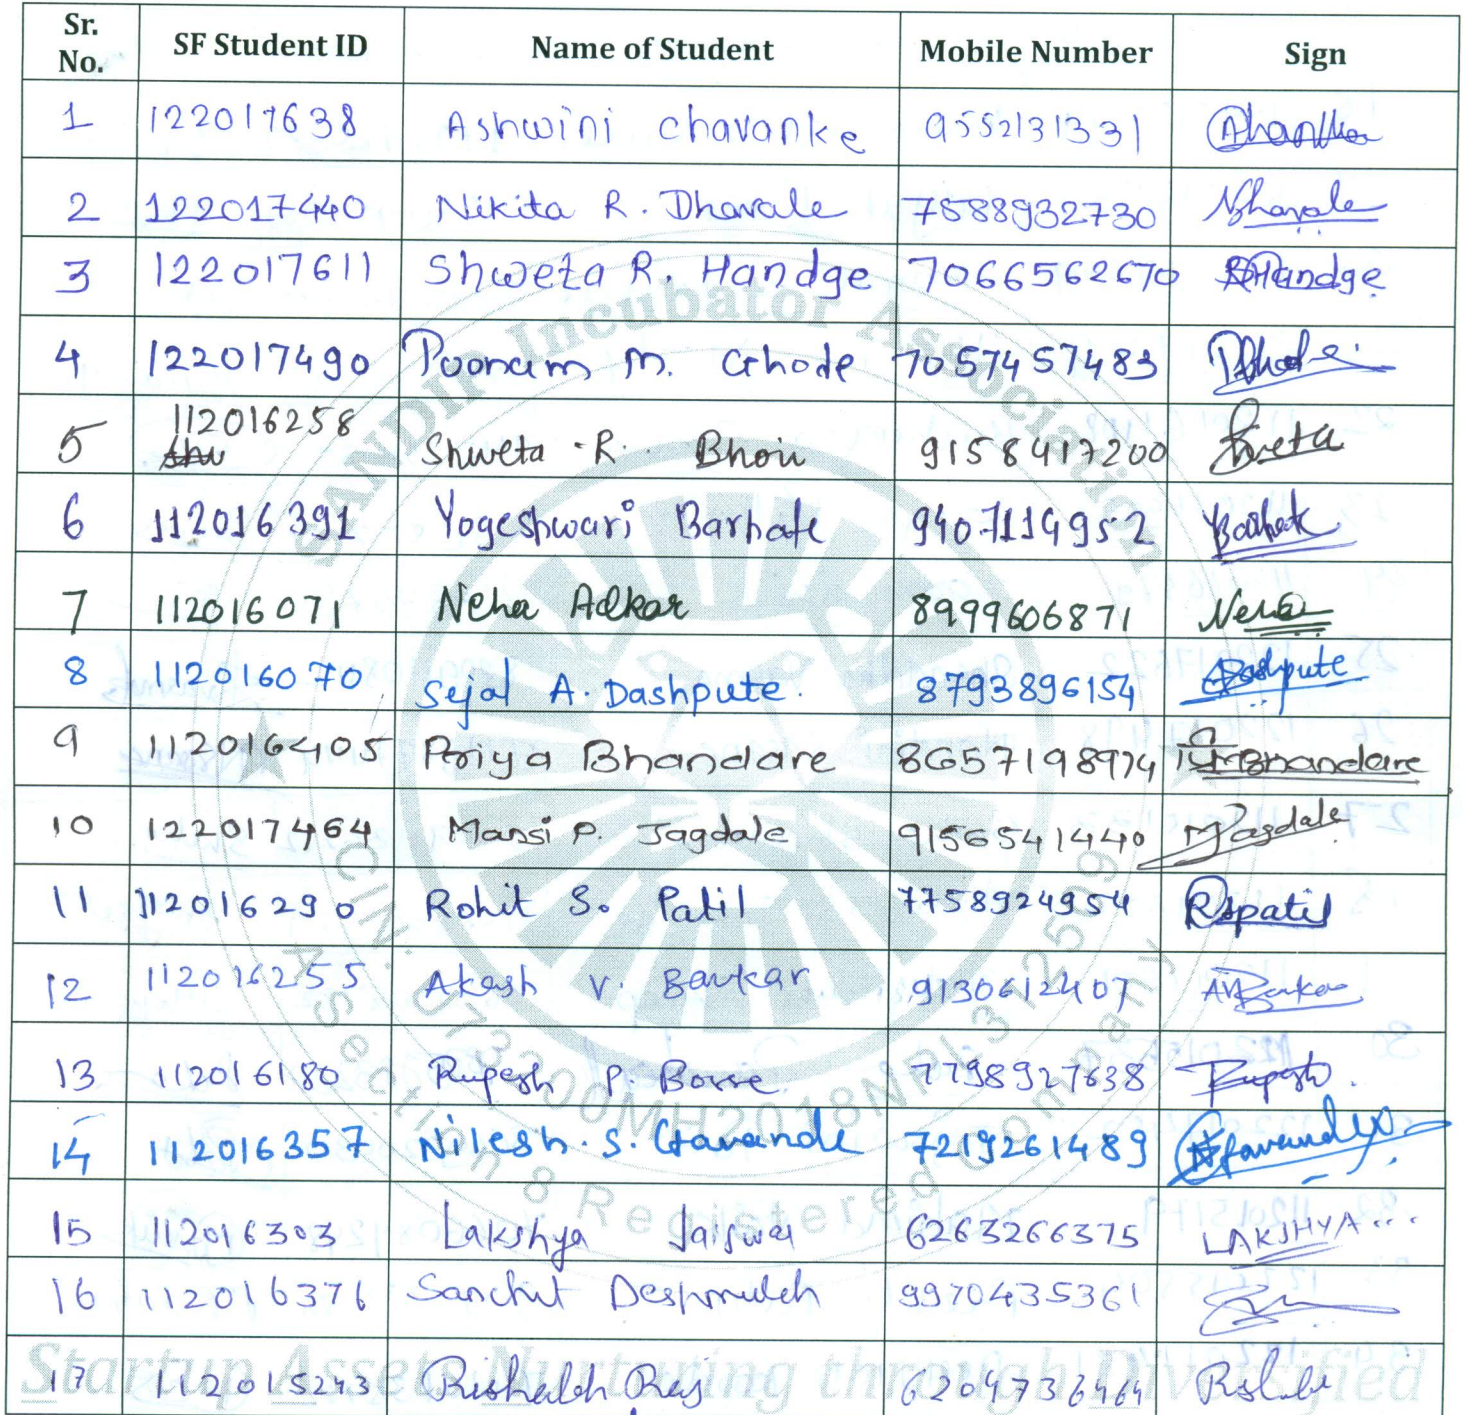 Sr. No. SF Student ID Name of Student Mobile Number Sign
1 122017638 Ashwini chavanke 9552131331
2 122017440 Nikita R. Dhavale 7588932730 Dhavale
3 122017611 Shweta R. Handge 7066562670 Handge
4 122017490 Poonam M. Ghode 7057457483
5 112016258 Shweta R. Bhoir 9158417200 Shweta
6 112016391 Yogeshwari Barhate 9407119952
7 112016071 Neha Adkar 8999606871 Neha
8 112016070 Sejal A. Dashpute. 8793896154 Dashpute
9 112016405 Priya Bhandare 8657198974 Bhandare
10 122017464 Mansi P. Jagdale 9156541440 Jagdale
11 112016290 Rohit S. Patil 7758924954 RSpatil
12 112016255 Akash V. Bavkar 9130612407
13 112016180 Rupesh P. Borse 7798927638 Rupesh
14 112016357 Nilesh. S. Gavande 7219261489
15 112016303 Lakshya Jaiswal 6263266375 LAKSHYA...
16 112016376 Sanchit Deshmukh 9970435361
17 112015243 Rishabh Raj 6204736464
SANDIP Incubator Association
CIN: U73200MH2018NPL312509
A Section 8 Registered Company
Startup Assets Nurturing through Diversified